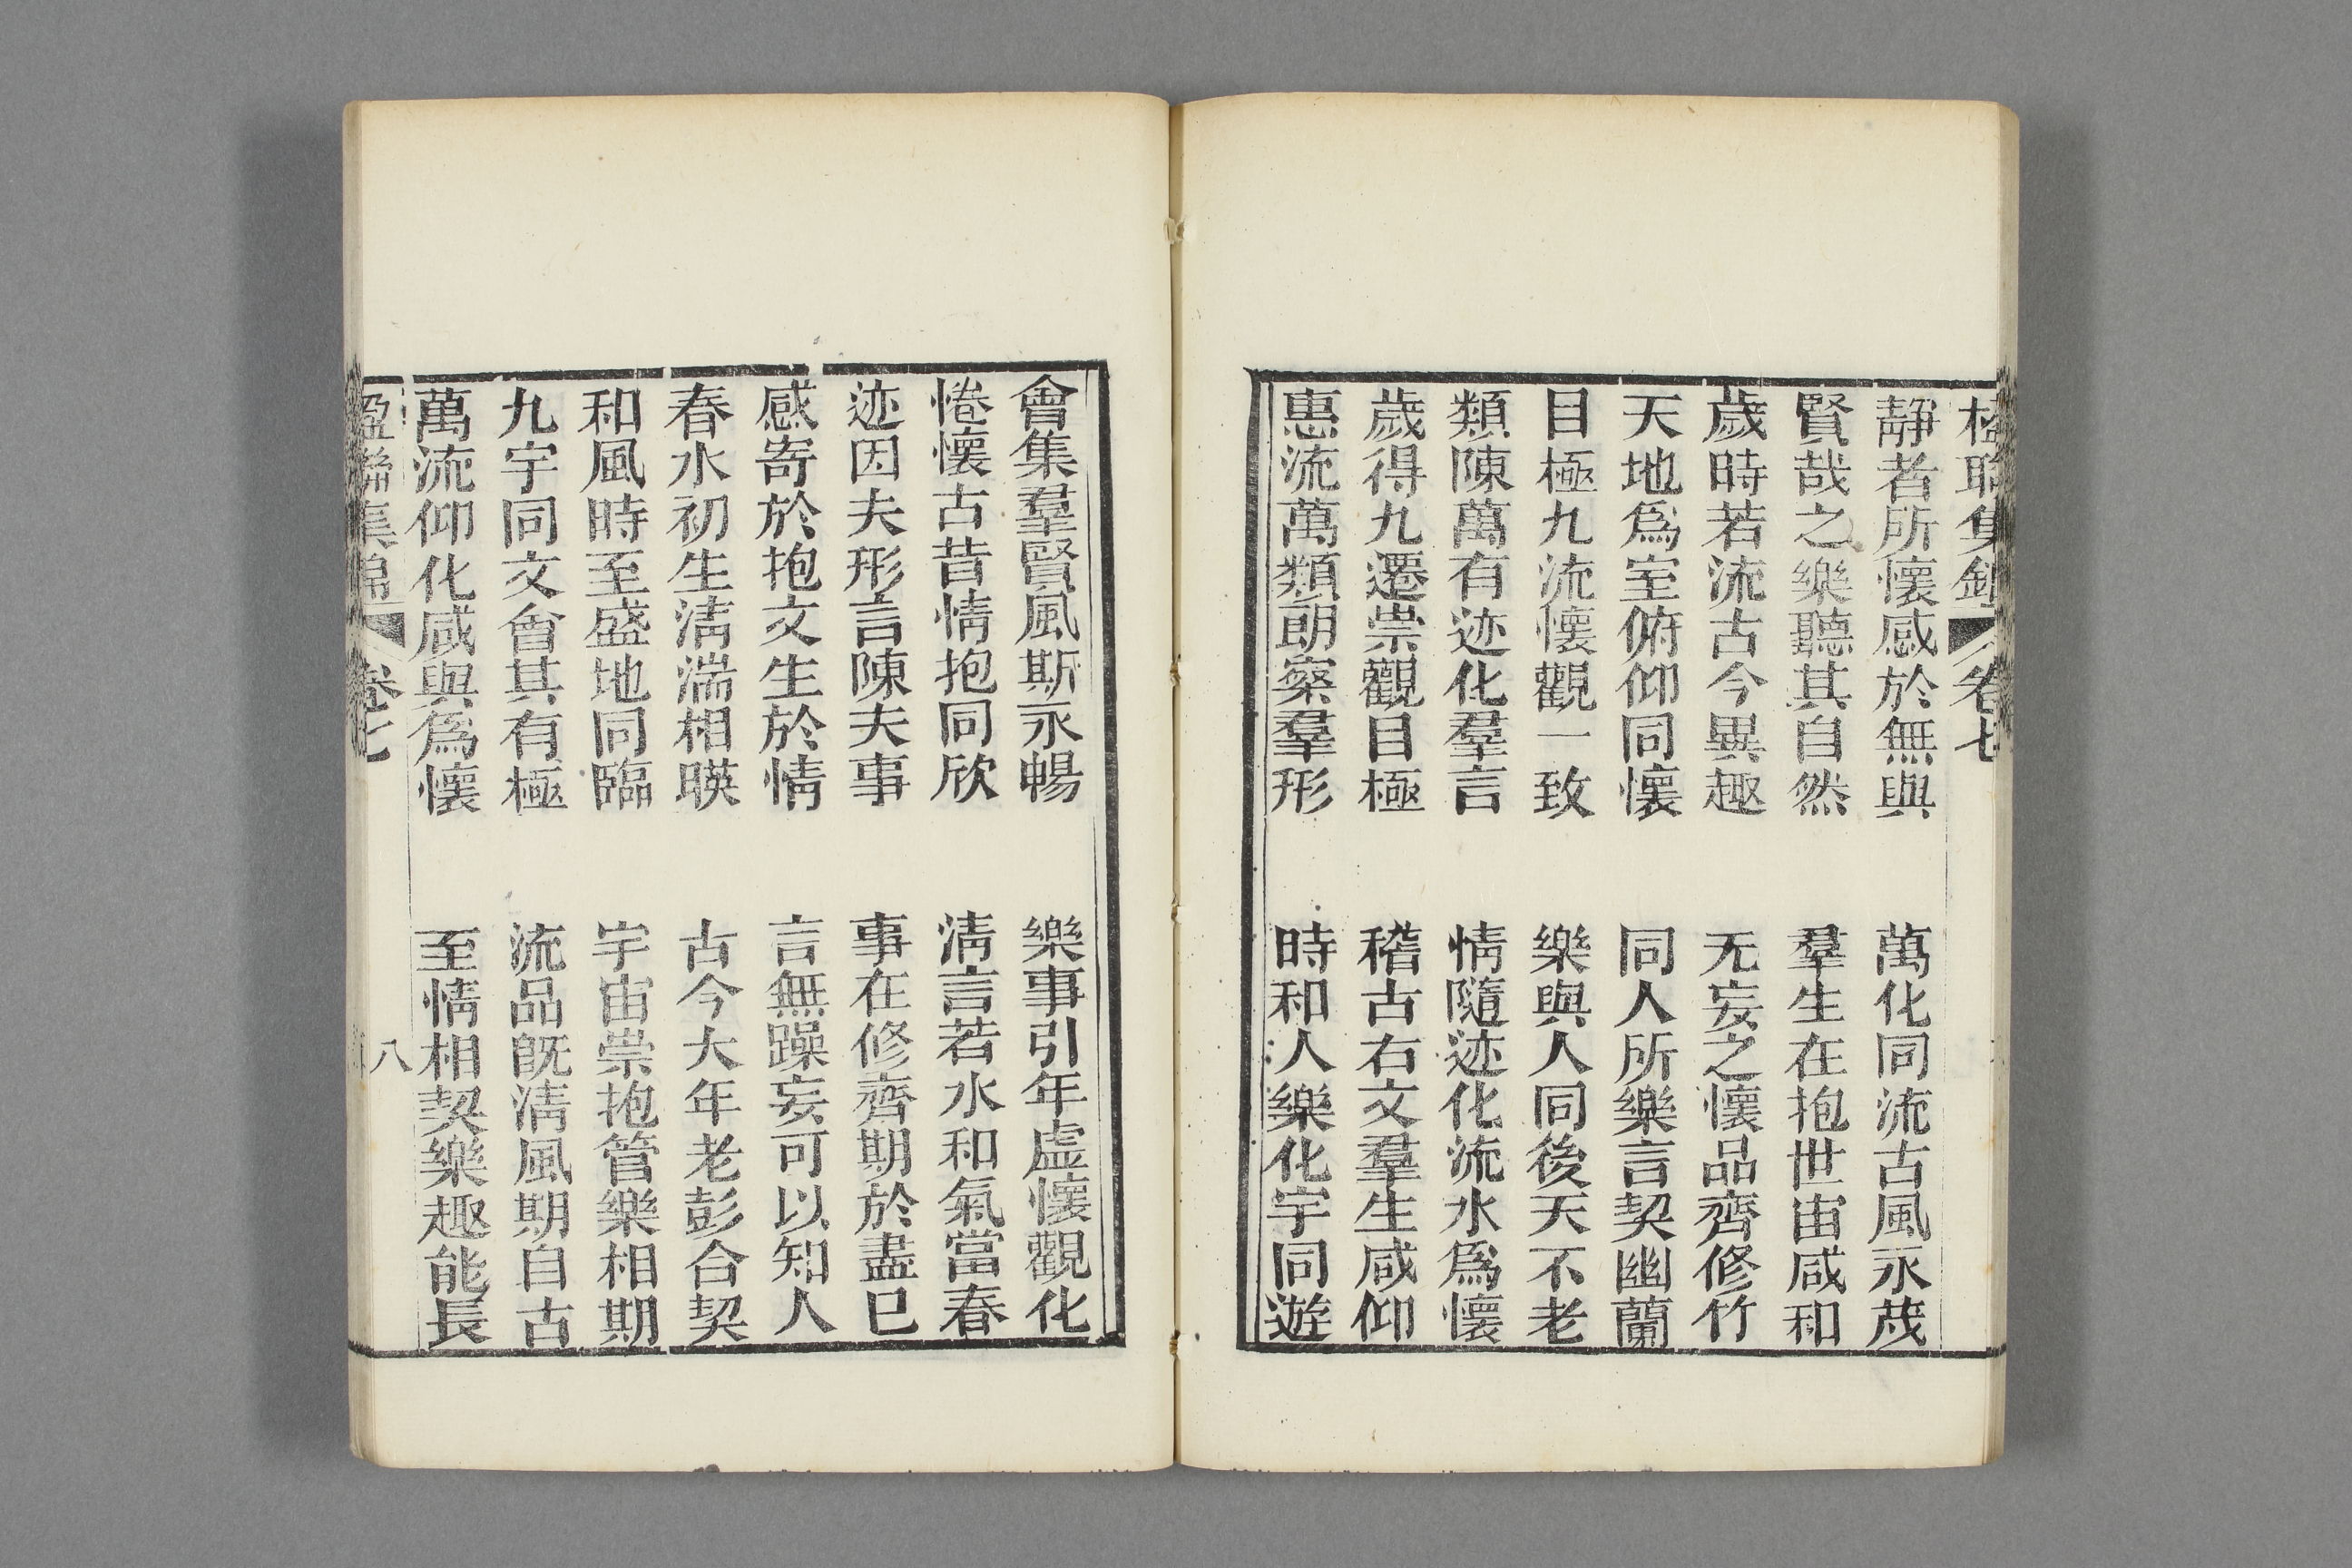 楹聯集錦 卷七
靜者所懷感於無與 萬化同流古風永茂
賢哉之樂聽其自然 羣生在抱世宙咸和
歲時若流古今異趣 无妄之懷品齊修竹
天地爲室俯仰同懷 同人所樂言契幽蘭
目極九流懷觀一致 樂與人同後天不老
類陳萬有迹化羣言 情隨迹化流水爲懷
歲得九遷崇觀目極 稽古右文羣生咸仰
惠流萬類朗察羣形 時和人樂化宇同遊
會集羣賢風斯永暢 樂事引年虛懷觀化
惓懷古昔情抱同欣 淸言若水和氣當春
迹因夫形言陳夫事 事在修齊期於盡已
感寄於抱文生於情 言無躁妄可以知人
春水初生淸湍相暎 古今大年老彭合契
和風時至盛地同臨 宇宙崇抱管樂相期
九宇同文會其有極 流品旣淸風期自古
萬流仰化咸與爲懷 至情相契樂趣能長
楹聯集錦 卷七 八